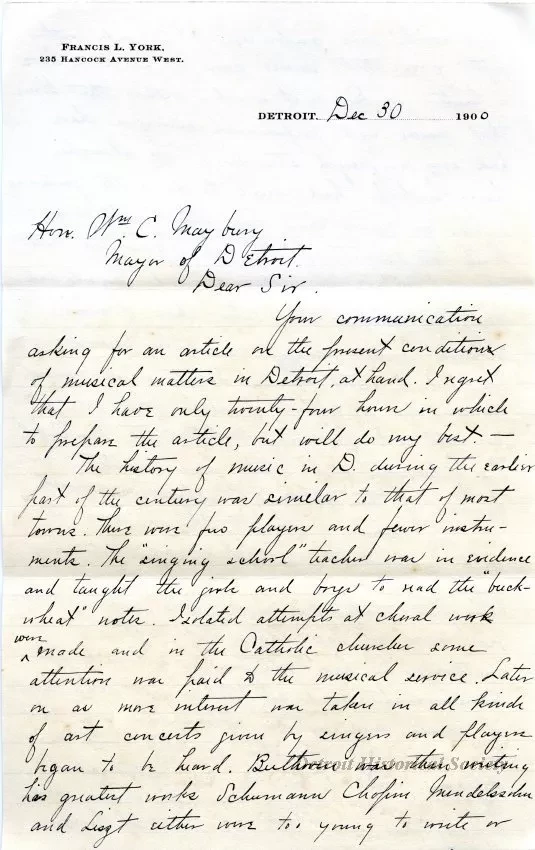 FRANCIS L. YORK,
235 HANCOCK AVENUE WEST.
DETROIT. Dec 30 1900
Hon. Wm C. Maybury
Mayor of Detroit.
Dear Sir.
Your communication
asking for an article on the present condition
of musical matters in Detroit, at hand. I regret
that I have only twenty-four hours in which
to prepare the article, but will do my best. —
The history of music in D. during the earlier
part of the century was similar to that of most
towns. There were few players and fewer instru-
ments. The "singing school" teacher was in evidence
and taught the girls and boys to read the "buck-
wheat" notes. Isolated attempts at choral work
were
^ made and in the Catholic churches some
attention was paid to the musical service. Later
on as more interest was taken in all kinds
of art concerts given by singers and players
began to be heard. Beethoven was then writing
his greatest works Schumann Chopin Mendelssohn
and Liszt either were too young to write or
Detroit Historical Society